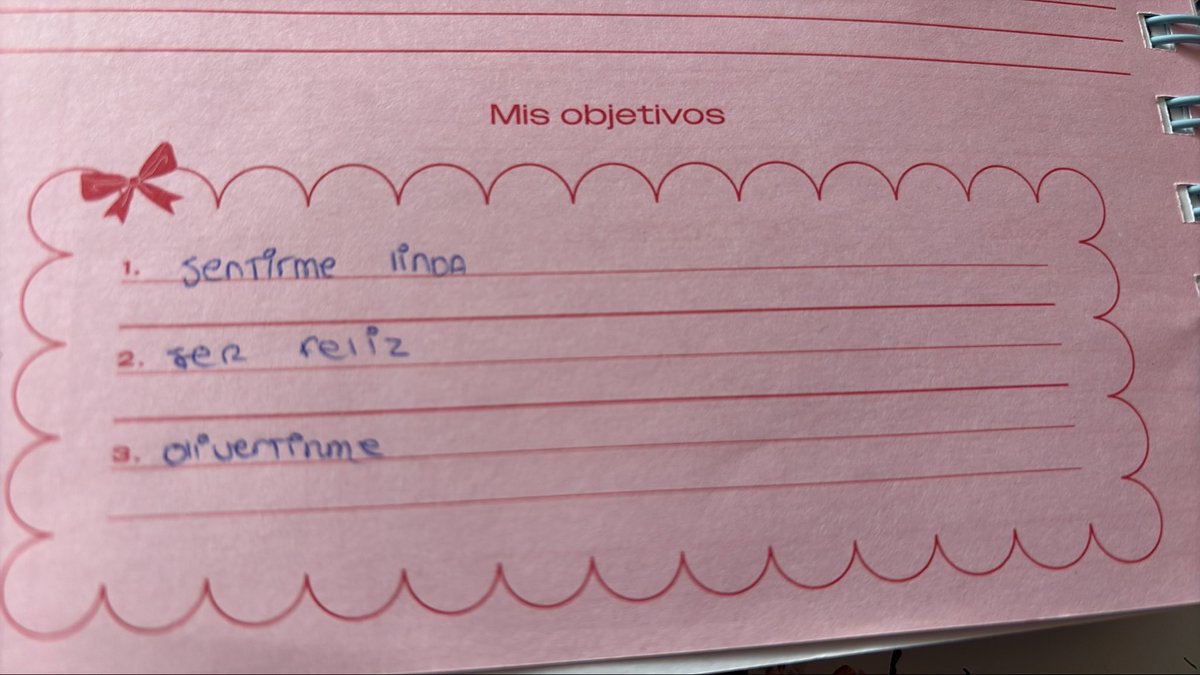 Mis objetivos
1. sentirme linda
2. ser feliz
3. divertirme